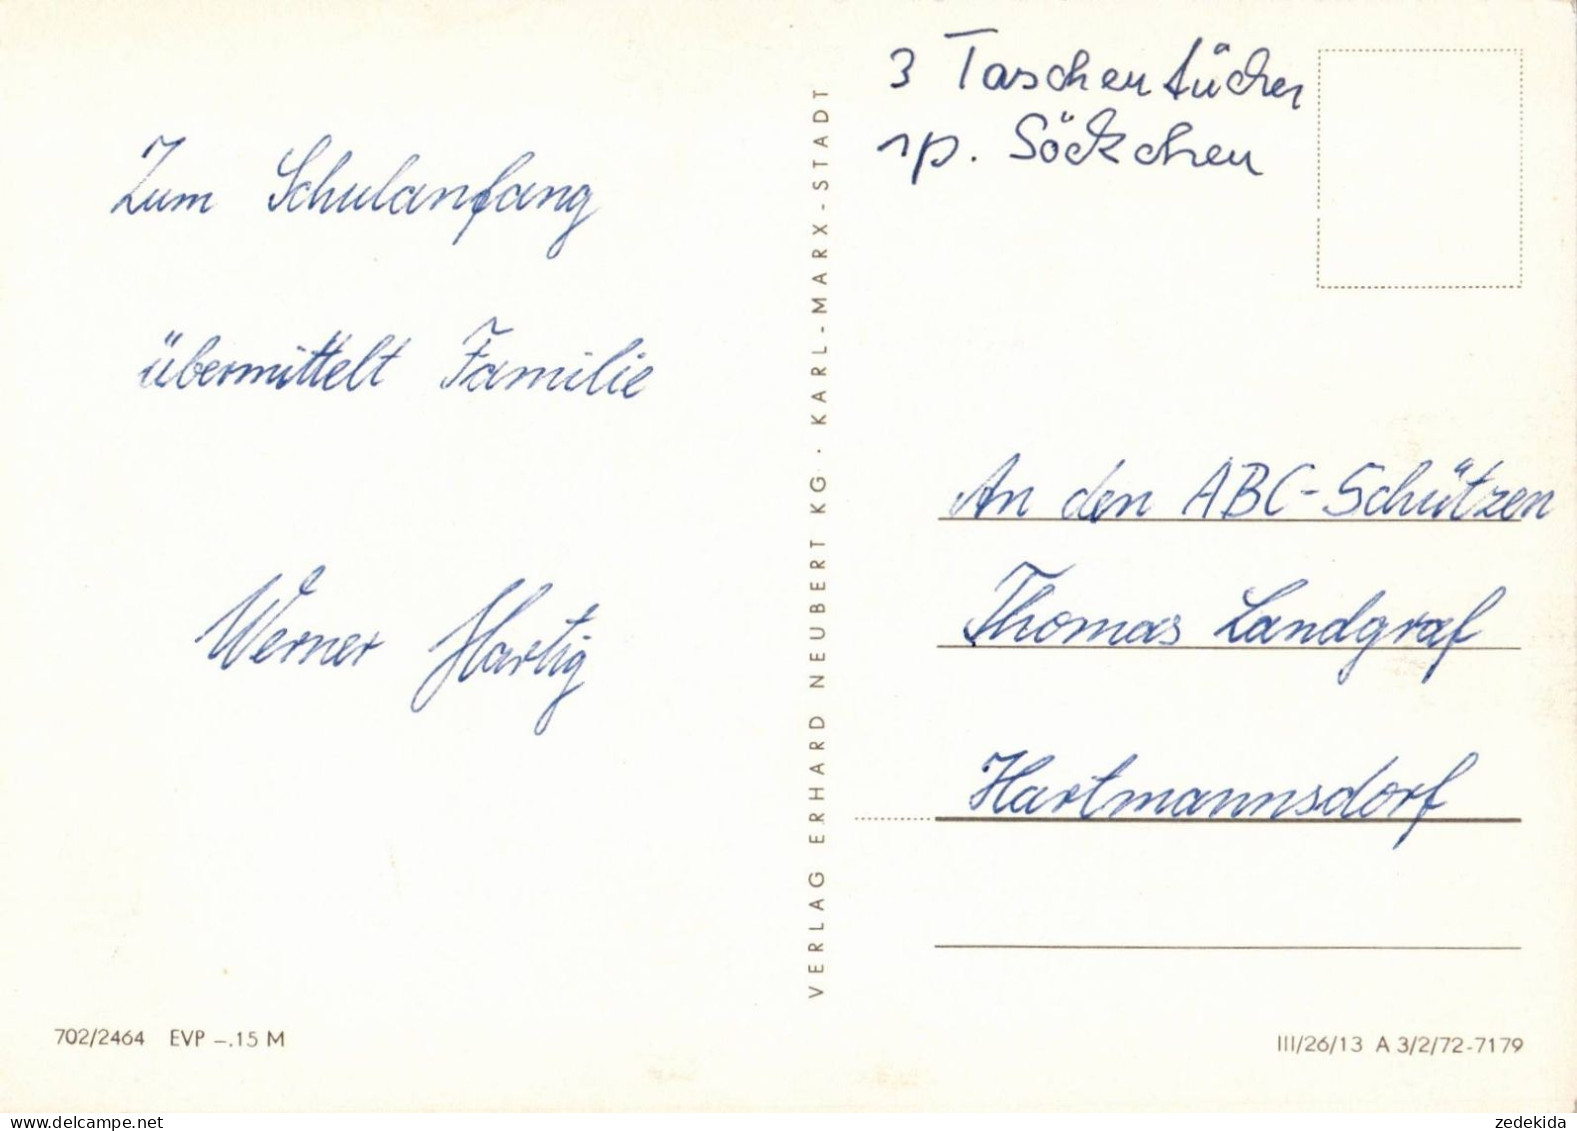 Zum Schulanfang
übermittelt Familie
Werner Hartig
3 Taschentücher
1p. Söckchen
An den ABC-Schützen
Thomas Landgraf
Hartmannsdorf
VERLAG ERHARD NEUBERT KG · KARL-MARX-STADT
702/2464 EVP –.15 M
III/26/13 A 3/2/72-7179
zedekida